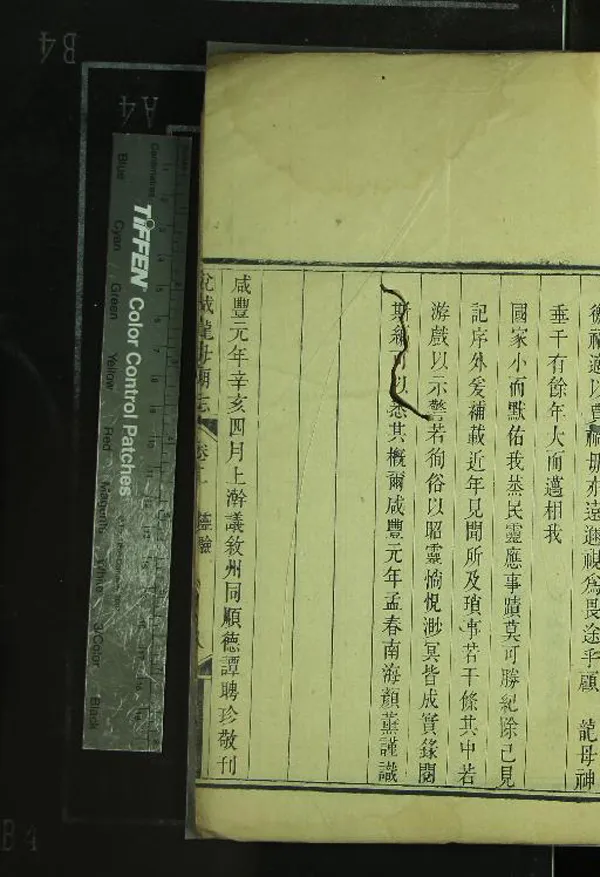 龍母神
垂千有餘年大而邁相我
國家小而默佑我蒸民靈應事蹟莫可勝紀除已見
記序外爰補載近年見聞所及瑣事若干條其中若
游戲以示警若徇俗以昭靈惝怳渺冥皆成實錄閱
斯編可以悉其概爾咸豐元年孟春南海顏薰謹識
咸豐元年辛亥四月上澣議敘州同順德譚聘珍敬刊
悅城龍母廟志 卷二 靈驗
B4
A4
Centimetres
TIFFEN Color Control Patches
Blue
Cyan
Green
Yellow
Red
Magenta
White
3/Color
Black
B4